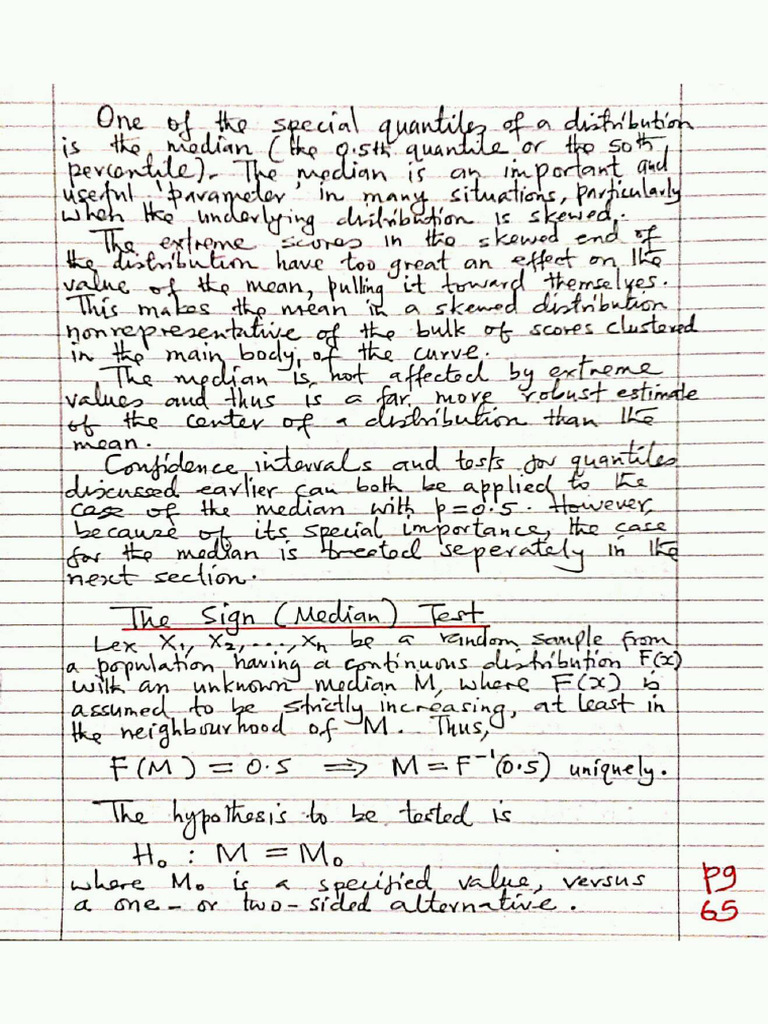 One of the special quantiles of a distribution
is the median (the 0.5th quantile or the 50th
percentile). The median is an important and
useful 'parameter' in many situations, particularly
when the underlying distribution is skewed.
The extreme scores in the skewed end of
the distribution have too great an effect on the
value of the mean, pulling it toward themselves.
This makes the mean in a skewed distribution
nonrepresentative of the bulk of scores clustered
in the main body of the curve.
The median is not affected by extreme
values and thus is a far more robust estimate
of the center of a distribution than the
mean.
Confidence intervals and tests for quantiles
discussed earlier can both be applied to the
case of the median with p=0.5. However,
because of its special importance, the case
for the median is treated seperately in the
next section.
The Sign (Median) Test
Lex X₁, X₂, ..., Xn be a random sample from
a population having a continuous distribution F(x)
with an unknown median M, where F(x) is
assumed to be strictly increasing, at least in
the neighbourhood of M. Thus,
F(M) = 0.5 ⟹ M = F⁻¹(0.5) uniquely.
The hypothesis to be tested is
H₀ : M = M₀
where M₀ is a specified value, versus
a one- or two-sided alternative.
pg
65